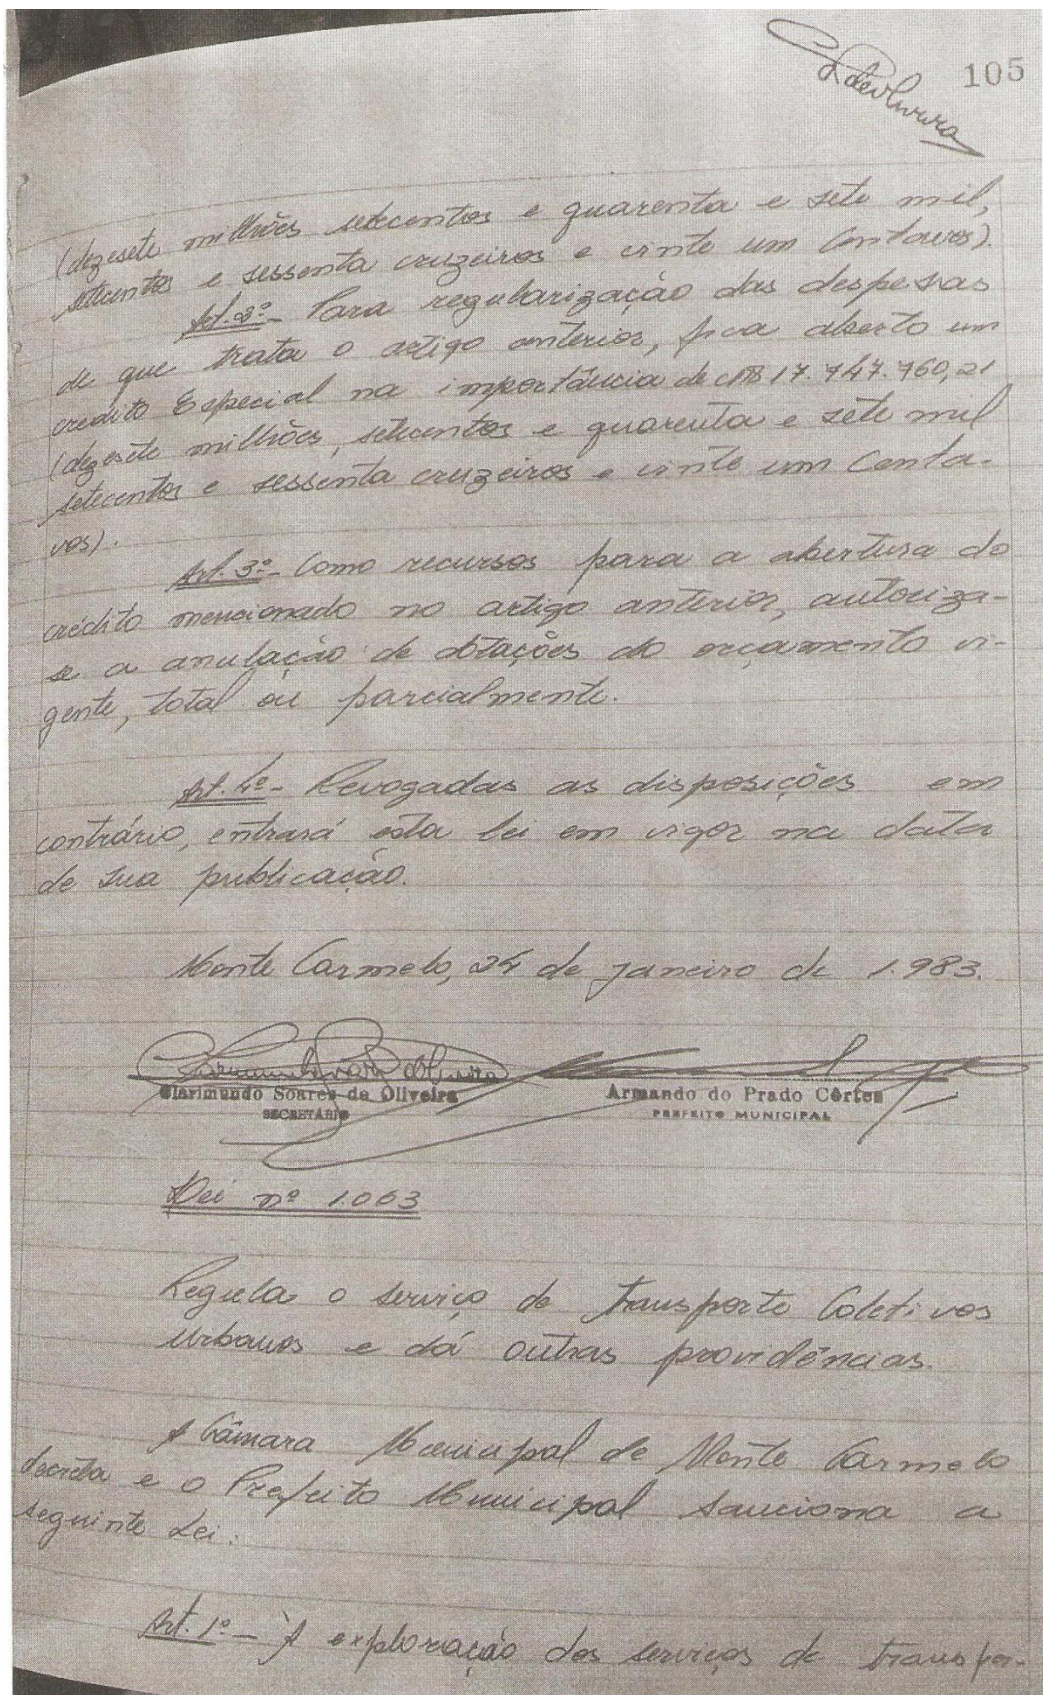 105
(dezesete milhões setecentos e quarenta e sete mil,
setecentos e sessenta cruzeiros e vinte um Centavos).
Art. 2º - Para regularização das despesas
de que trata o artigo anterior, fica aberto um
crédito Especial na importância de CR$ 17.747.760,21
(dezesete milhões, setecentos e quarenta e sete mil
setecentos e sessenta cruzeiros e vinte um Centa-
vos).
Art. 3º - Como recursos para a abertura do
crédito mencionado no artigo anterior, autoriza-
se a anulação de dotações do orçamento vi-
gente, total ou parcialmente.
Art. 4º - Revogadas as disposições em
contrário, entrará esta lei em vigor na data
de sua publicação.
Monte Carmelo, 24 de janeiro de 1.983.
Clarimundo Soares de Oliveira
SECRETÁRIO
Armando do Prado Côrtes
PREFEITO MUNICIPAL
Lei nº 1.063
Regula o serviço de Transporte Coletivos
Urbanos e dá outras providências.
A Câmara Municipal de Monte Carmelo
decreta e o Prefeito Municipal sanciona a
seguinte Lei:
Art. 1º - À exploração dos serviços de transpor-